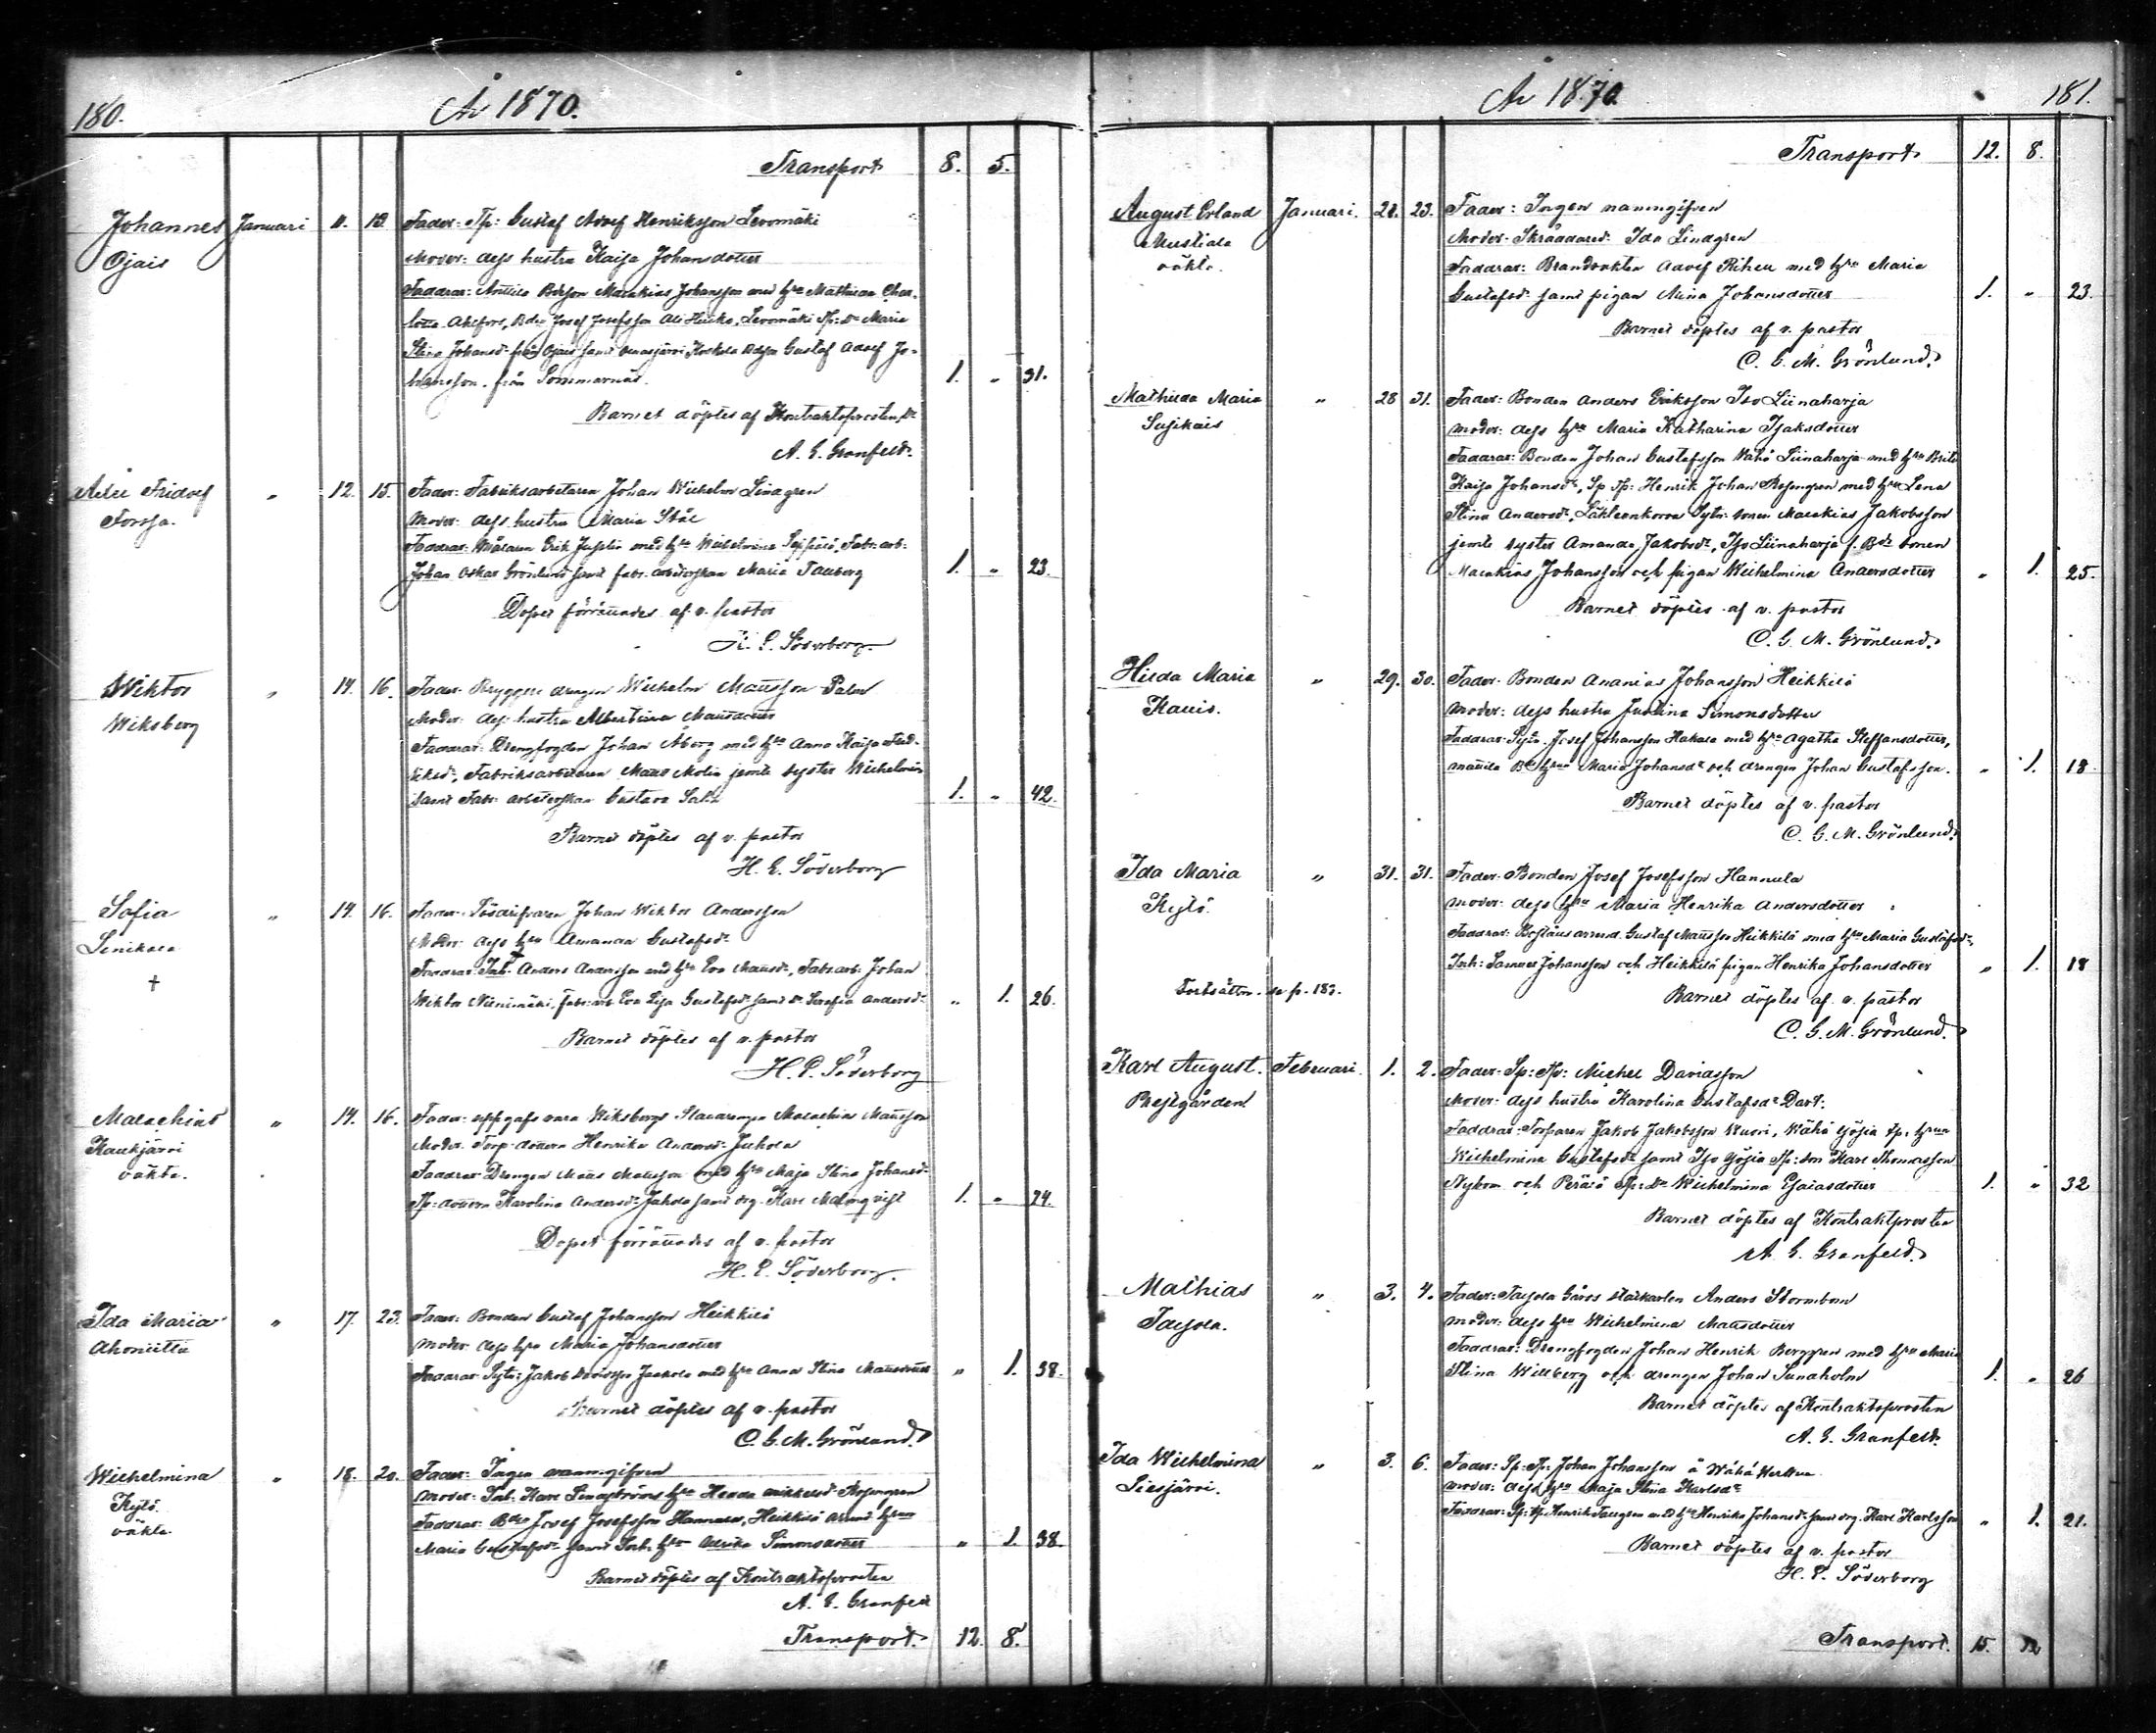 180.
År 1870.
Transport 8. 5.
Johannes Januari 11. 13. Fader: Tp: Gustaf Adolf Henriksson Levomäki
Ojais Moder: dess hustru Kaisa Johansdotter
Faddrar: Anttila Bdeson Malakias Johansson med hru Mathilda Char-
lotta Ahlfors, Bden Josef Josefsson Ali Heiko, Levomäki Tp: Dr Maria
Stina Johansdr från Ojais samt Koskela Bdson Gustaf Adolf Jo-
hansson från Sommarnäs. 1. " 31.
Barnet döptes af Kontraktsprosten, Dr
A. E. Granfeld.
Atle Fridolf " 12. 15. Fader: Fabriksarbetaren Johan Wilhelm Lindgren
Forssa. Moder: dess hustru Maria Stål
Faddrar: Målaren Erik Juslin med hru Wilhelmina Fabr: arb:
Johan Oskar Grönlund samt fabr: arbeterskan Maria Tauberg 1. " 23.
Dopet förrättades af v. pastor
H. E. Söderborg.
Wiktor " 14. 16. Fader: Bryggeri drengen Wilhelm Mattsson Palm
Wiksberg Moder: dess hustru Albertina Mattsdotter
Faddrar: Drengfogden Johan Åberg med hru Anna Kaisa Fred-
riksdr, Fabriksarbetaren Matts Molin jemte syster Wilhelmina
samt Fabr: arbeterskan Gustava 1. " 42.
Barnet döptes af v. pastor
H. E. Söderborg
Sofia " 14. 16. Fader: Johan Wiktor Andersson
Linikkala Moder: dess hru Amanda Gustafsdr
† Faddrar: Anders Andersson med hru Eva Mattsdr, Fabr: arb: Johan
Wiktor Nienimäki, fabr: arb: Eva Lisa Gustafsdr samt Dr Serafia Andersdr " 1. 26.
Barnet döptes af v. pastor
H. E. Söderborg
Malachias " 14. 16. Fader: uppgafs vara Wiksbergs Statdrengen Malachias Mattsson
Kaukjärvi Moder: Torp: dottern Henrika Andersdr Juhola
oäkta. Faddrar: Drengen Matts Mattsson med hru Maja Stina Johansdr
Tp: dottern Karolina Andersdr Juhola samt drg. Karl Malmqvist 1. " 24.
Dopet förrättades af v. pastor
H. E. Söderborg.
Ida Maria " 17. 23. Fader: Bonden Gustaf Johansson Heikkilä
Ahoniittu Moder: dess hru Maria Johansdotter
Faddrar: Sytn: Jakob Davidsson Jaakola med hru Anna Stina Mattsdotter " 1. 38.
Barnet döptes af v. pastor
C. G. M. Grönlund.
Wilhelmina " 18. 20. Fader: Ingen namngifven
Kylö Moder: Inh. Karl Lindströms hru Hedda Mickelsdr Rosengren
oäkta. Faddrar: Bden Josef Josefsson Hannula, Heikkilä arrend. hrun
Maria Gustafsdr samt Inh. hru Ulrika Simonsdotter " 1. 38.
Barnet döptes af Kontraktsprosten
A. E. Granfelt
Transport. 12. 8.
År 1870
181.
Transport 12. 8.
August Erland Januari. 21. 23. Fader: Ingen namngifven
Mustiala Moder: Skräddaredr Ida Lindgren
oäkta. Faddrar: Brandvakten Adolf Riheu med hru Maria
Gustafsdr samt pigan Mina Johansdotter 1. " 23.
Barnet döptes af v. pastor
C. G. M. Grönlund.
Mathilda Maria " 28 31. Fader: Bonden Anders Eriksson Iso Liinaharja
Susikais Moder: dess hru Maria Katharina Isaksdotter
Faddrar: Bonden Johan Gustafsson Wähä Liinaharja med hru Brita
Kaisa Johansdr, Sp: Tp: Henrik Johan Rosengren med hru Lena
Stina Andersdr, Lähteenkorva Sytn: sonen Malakias Jakobsson
jemte syster Amanda Jakobsdr, Iso Liinaharja f. Bde sonen
Malakias Johansson och pigan Wilhelmina Andersdotter " 1. 25.
Barnet döptes af v. pastor
C. G. M. Grönlund.
Hilda Maria " 29. 30. Fader: Bonden Ananias Johansson Heikkilä
Kauis. Moder: dess hustru Justina Simonsdotter
Faddrar: Sytn. Josef Johansson Hakala med hru Agatha Steffansdotter,
Mattila Bde hrun Maria Johansdr och drengen Johan Gustafsson. " 1. 18
Barnet döptes af v. pastor
C. G. M. Grönlund.
Ida Maria " 31. 31. Fader: Bonden Josef Josefsson Hannula
Kylö. Moder: dess hru Maria Henrika Andersdotter
Faddrar: arrend. Gustaf Mattsson Heikkilä med hru Maria Gustafsdr,
Inh: Samuel Johansson och Heikkilä pigan Henrika Johansdotter " 1. 18
Fortsättn. se p. 183. Barnet döptes af v. pastor
C. G. M. Grönlund.
Karl August. Februari. 1. 2. Fader: Sp: Tp: Michel Davidsson
Prestgården Moder: dess hustru Karolina Gustafsdr Davt:
Faddrar: Torparen Jakob Jakobsson Wuori, Wähä Tp: hrun
Wilhelmina Gustafsdr samt Iso Tp: son Karl Thomasson
Nykom och Perälä Tp: Dr Wilhelmina Esaiasdotter 1. " 32
Barnet döptes af Kontraktprosten
A. E. Granfeld.
Mathias " 3. 4. Fader: Saijola Gårds statkarlen Anders Stormbom
Saijola. Moder: dess hru Wilhelmina Mattsdotter
Faddrar: Drengfogden Johan Henrik Berggren med hru Maria
Stina Willberg och drengen Johan Sundholm 1. " 26
Barnet döptes af Kontraktsprosten
A. E. Granfelt.
Ida Wilhelmina " 3. 6. Fader: Sp: Tp: Johan Johansson å Wähä
Liesjärvi. Moder: dess hru Maja Stina Karlsdr
Faddrar: Sp: Tp: Henrik med hru Henrika Johansdr samt drg. Karl Karlsson " 1. 21.
Barnet döptes af v. pastor
H. E. Söderborg
Transport. 15. 12